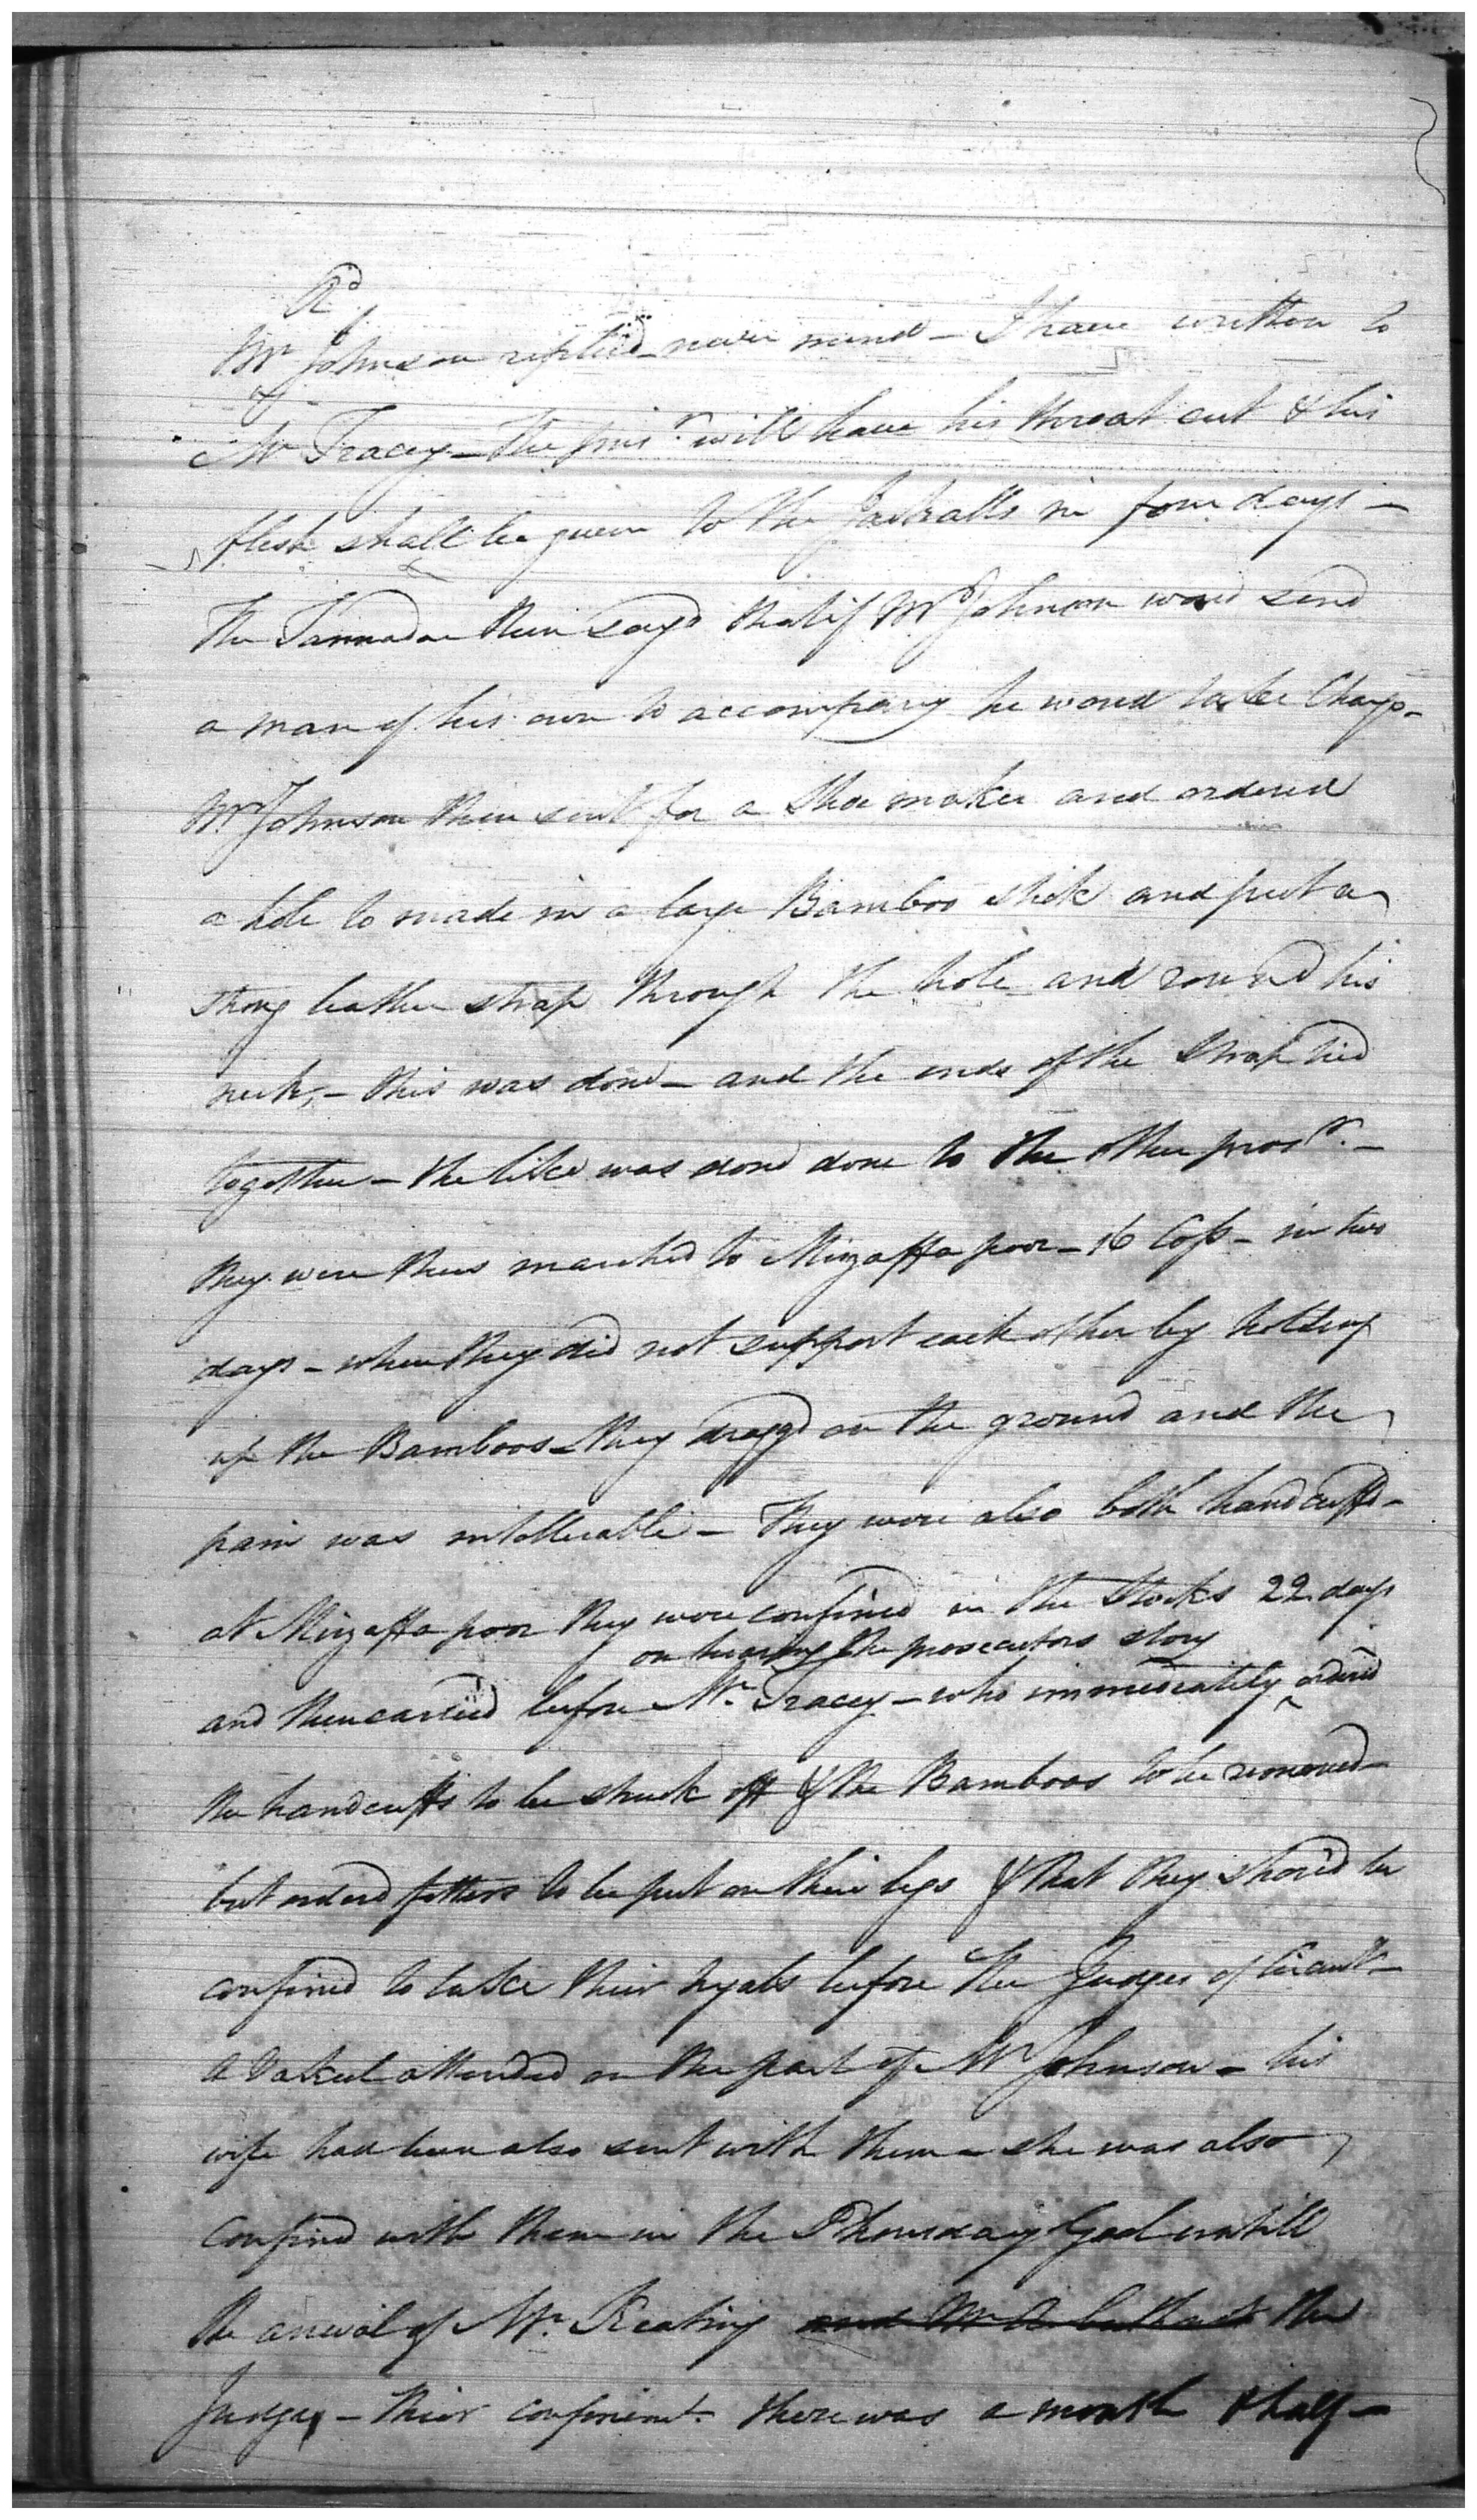 Rd.
Mr Johnson replied never mind - I have written to
Mr Tracey - the pris.r will have his throat cut & his
flesh shall be given to the Jackalls in four days -
The Tannadar then says that if Mr Johnson woud send
a man of his own to accompany he woud take Charge -
Mr Johnson then sent for a Shoe maker and ordered
a hole to made in a large Bamboo stick and put a
strong leather strap through the hole and round his
neck, - this was done - and the ends of the Strap tied
together - the like was done done to the other prosr. -
they were then marched to Mirzaffapoor - 16 Coss - in two
days - when they did not support each other by holding
up the Bamboos - they dragg'd on the ground and the
pain was intollerable - They were also both handcuff'd -
at Mirzaffapoor they were confined in the Stocks 22 days
on hearing the prosecutors story
and then carried before Mr. Tracey - who immediately ^ ordered
the handcuffs to be struck off & the Bamboos to be removed -
but orderd fetters to be put on their legs & that they shoud be
confined to take their tryals before the Judges of Circuit -
A Vakeel attended on the part of Mr Johnson - his
wife had been also sent with them - she was also
confined with them in the Phousdary Gaol untill
the arrival of Mr. Keating and Mr the
Judges - their confinemt. there was a month & half -